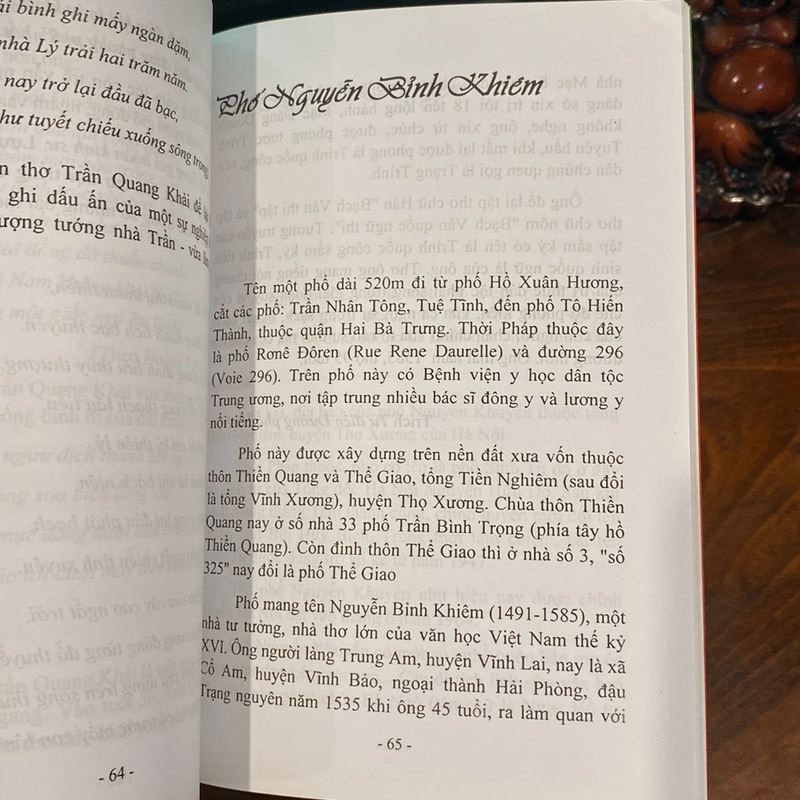 ái bình ghi mấy ngàn dặm,
nhà Lý trải hai trăm năm.
nay trở lại đầu đã bạc,
hư tuyết chiếu xuống sông trong
n thơ Trần Quang Khải để
ghi dấu ấn của một sự nghiệp
ượng tướng nhà Trần - vừa
- 64 -
Phố Nguyễn Bỉnh Khiêm
Tên một phố dài 520m đi từ phố Hồ Xuân Hương,
cắt các phố: Trần Nhân Tông, Tuệ Tĩnh, đến phố Tô Hiến
Thành, thuộc quận Hai Bà Trưng. Thời Pháp thuộc đây
là phố Rơnê Đôren (Rue Rene Daurelle) và đường 296
(Voie 296). Trên phố này có Bệnh viện y học dân tộc
Trung ương, nơi tập trung nhiều bác sĩ đông y và lương y
nổi tiếng.
Phố này được xây dựng trên nền đất xưa vốn thuộc
thôn Thiền Quang và Thể Giao, tổng Tiền Nghiêm (sau đổi
là tổng Vĩnh Xương), huyện Thọ Xương. Chùa thôn Thiền
Quang nay ở số nhà 33 phố Trần Bình Trọng (phía tây hồ
Thiền Quang). Còn đình thôn Thể Giao thì ở nhà số 3, "số
325" nay đổi là phố Thể Giao
Phố mang tên Nguyễn Bỉnh Khiêm (1491-1585), một
nhà tư tưởng, nhà thơ lớn của văn học Việt Nam thế kỷ
XVI. Ông người làng Trung Am, huyện Vĩnh Lai, nay là xã
Cổ Am, huyện Vĩnh Bảo, ngoại thành Hải Phòng, đậu
Trạng nguyên năm 1535 khi ông 45 tuổi, ra làm quan với
- 65 -